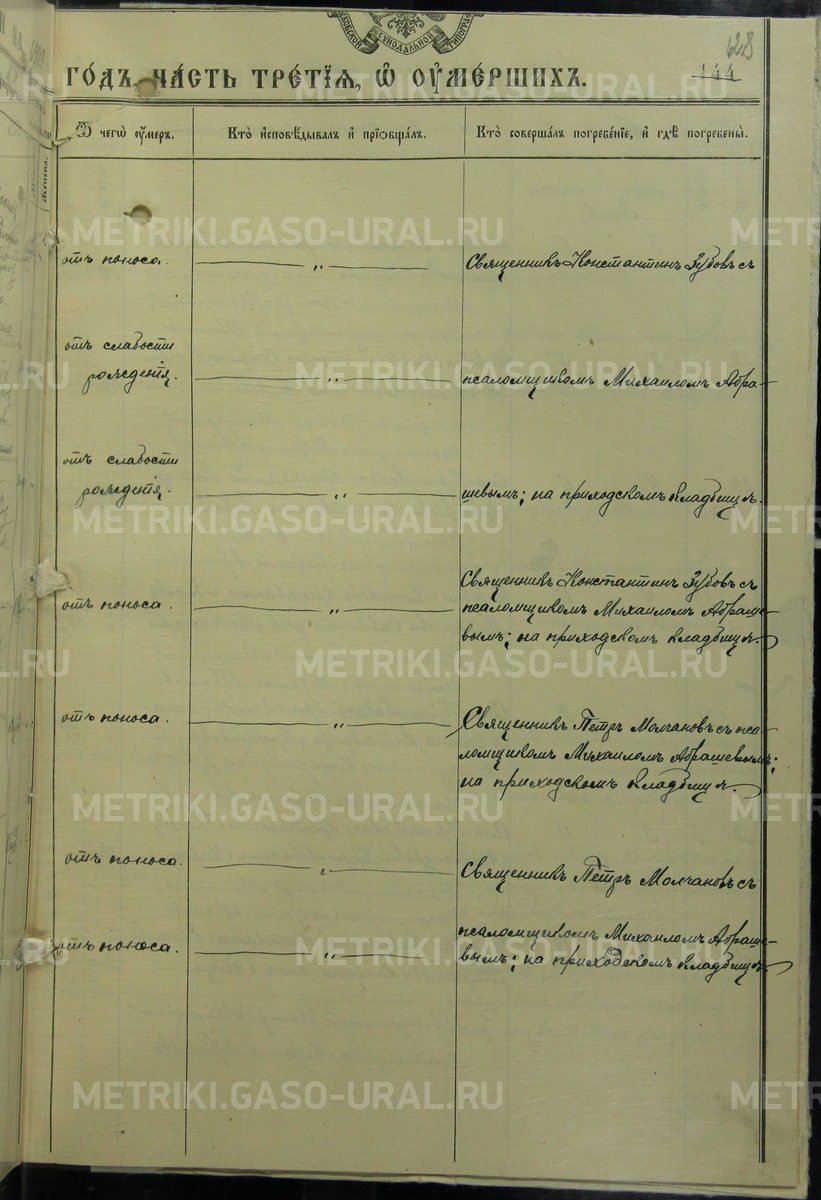 МОСКОВСКОЙ СѴНОДАЛЬНОЙ ТИПОГРАФ
128
144
ГО́ДЪ, ЧА́СТЬ ТРЕ́ТІѦ, Ѡ҆ ОУ҆МЕ́РШИХЪ.
Ѿ чегѡ̀ оу҆́меръ.
Кто̀ и҆сповѣ́дывалъ и҆ прїѻбща́лъ.
Кто̀ соверша́лъ погребе́нїе, и҆ гдѣ̀ погребены̀.
отъ поноса.
„
Священникъ Константинъ Зубовъ съ
отъ слабости
рожденія.
„
псаломщикомъ Михаиломъ Абра-
отъ слабости
рожденія.
„
шевымъ; на приходскомъ кладбищѣ.
Священникъ Константинъ Зубовъ съ
отъ поноса.
„
псаломщикомъ Михаиломъ Абраше-
вымъ; на приходскомъ кладбищѣ.
отъ поноса.
„
Священникъ Петръ Молчановъ съ пса-
ломщикомъ Михаиломъ Абрашевымъ;
на приходскомъ кладбищѣ.
отъ поноса.
„
Священникъ Петръ Молчановъ съ
псаломщикомъ Михаиломъ Абраше-
отъ поноса.
„
вымъ; на приходскомъ кладбищѣ.
METRIKI.GASO-URAL.RU